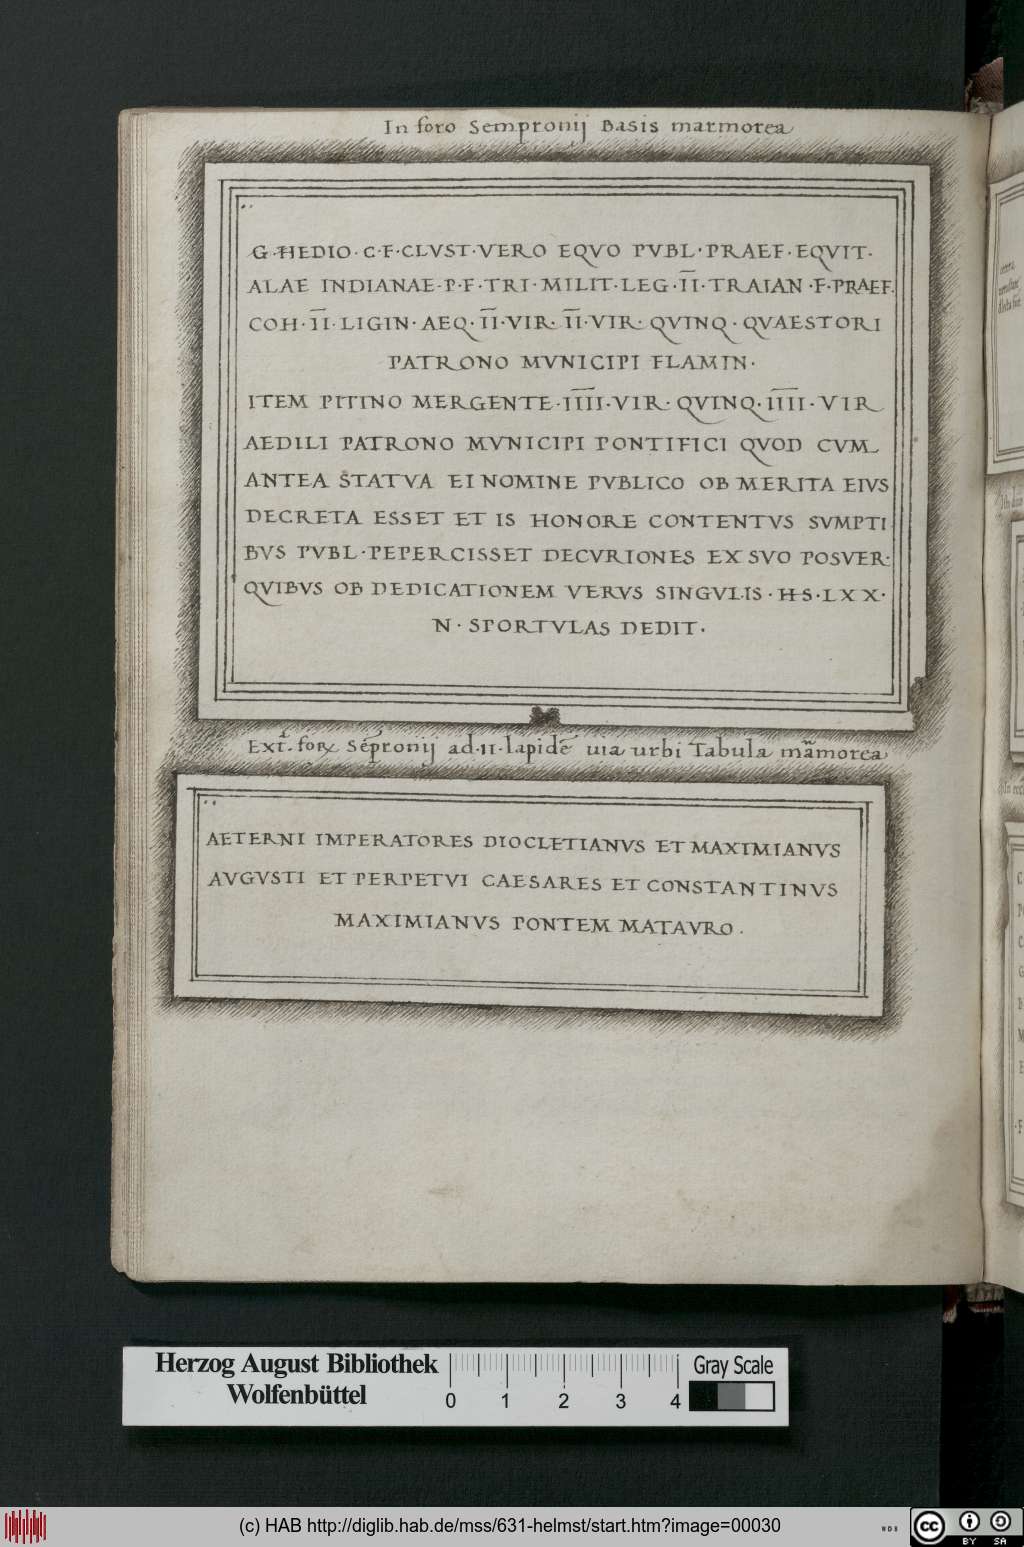 In foro Sempronij Basis marmorea
G·HEDIO·C·F·CLVST·VERO EQVO PVBL·PRAEF·EQVIT·
ALAE INDIANAE·P·F·TRI·MILIT·LEG·I̅I̅·TRAIAN·F·PRAEF.
COH·I̅I̅·LIGIN·AEQ·I̅I̅·VIR·I̅I̅·VIR·QVINQ·QVAESTORI
PATRONO MVNICIPI FLAMIN·
ITEM PITINO MERGENTE·I̅I̅I̅I̅·VIR·QVINQ·I̅I̅I̅I̅·VIR
AEDILI PATRONO MVNICIPI PONTIFICI QVOD CVM
ANTEA STATVA EI NOMINE PVBLICO OB MERITA EIVS
DECRETA ESSET ET IS HONORE CONTENTVS SVMPTI
BVS PVBL·PEPERCISSET DECVRIONES EX SVO POSVER·
QVIBVS OB DEDICATIONEM VERVS SINGVLIS·HS·LXX·
N·SPORTVLAS DEDIT·
Ext. foꝝ Sēpronij ad·II·lapidē uia urbi Tabula mamorea
AETERNI IMPERATORES DIOCLETIANVS ET MAXIMIANVS
AVGVSTI ET PERPETVI CAESARES ET CONSTANTINVS
MAXIMIANVS PONTEM MATAVRO.
Herzog August Bibliothek
Wolfenbüttel
0 1 2 3 4
Gray Scale
(c) HAB http://diglib.hab.de/mss/631-helmst/start.htm?image=00030
WDB
cc BY SA